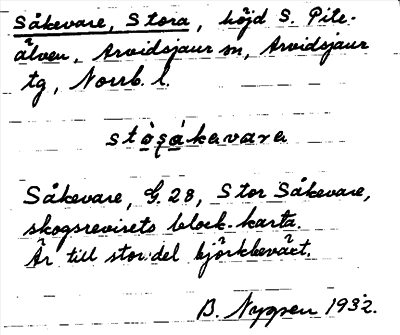 Såkevare, Stora, höjd S. Pite-
älven, Arvidsjaur sn, Arvidsjaur
tg, Norrb. l.
stòsákavara
Såkevare, G. 28, Stor Såkevare,
skogsrevirets block-karta.
Är till stor del björkbeväxt.
B. Nygren 1932.